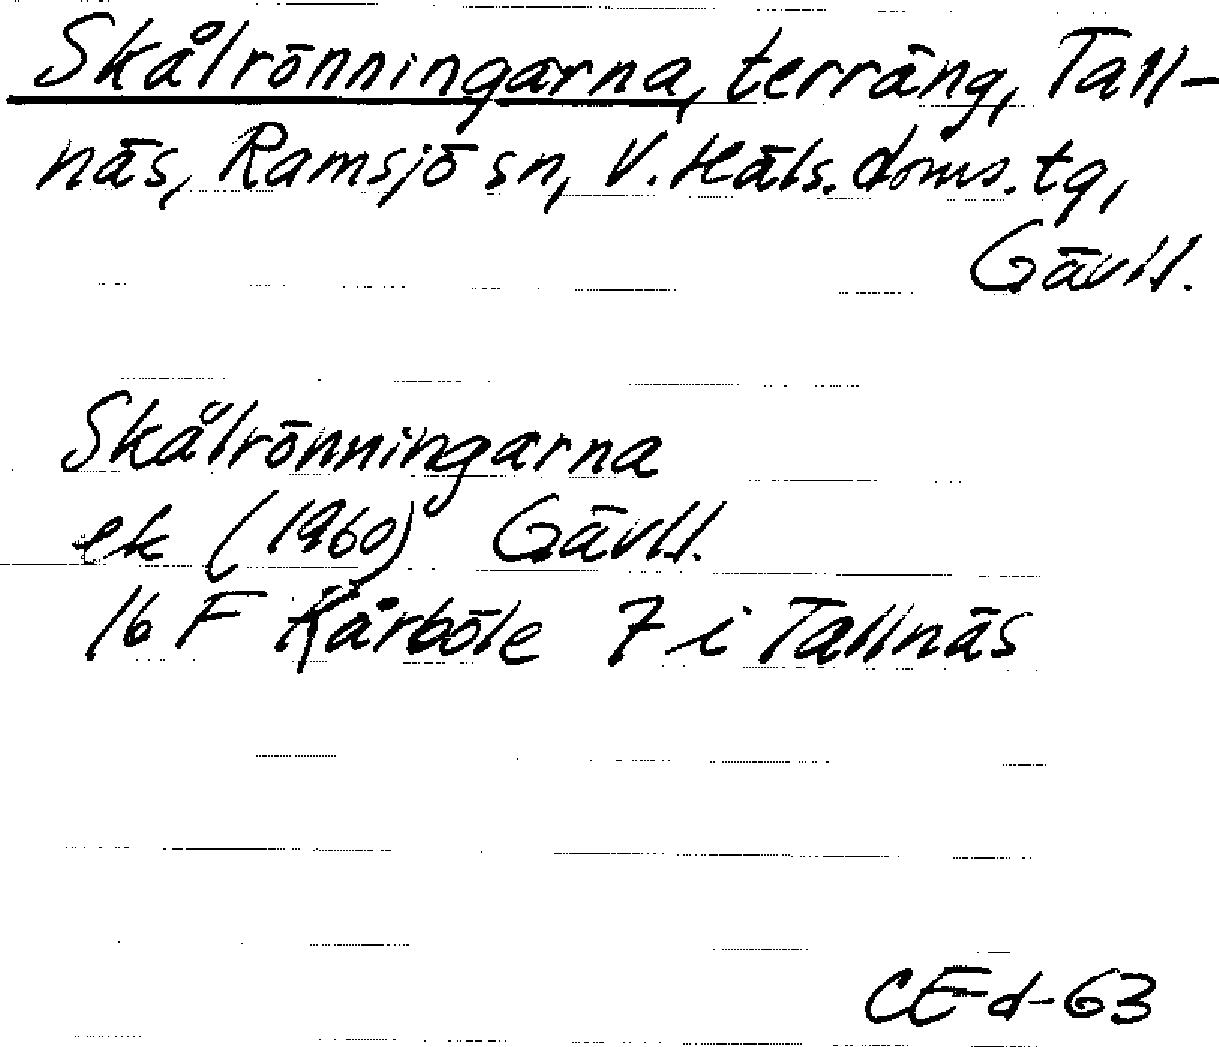 Skålrönningarna, terräng, Tall-
näs, Ramsjö sn, V. Häls. doms. tg,
Gävll.
Skålrönningarna
ek (1960) Gävll.
16 F Kårböle 7 i Tallnäs
CE-d-63